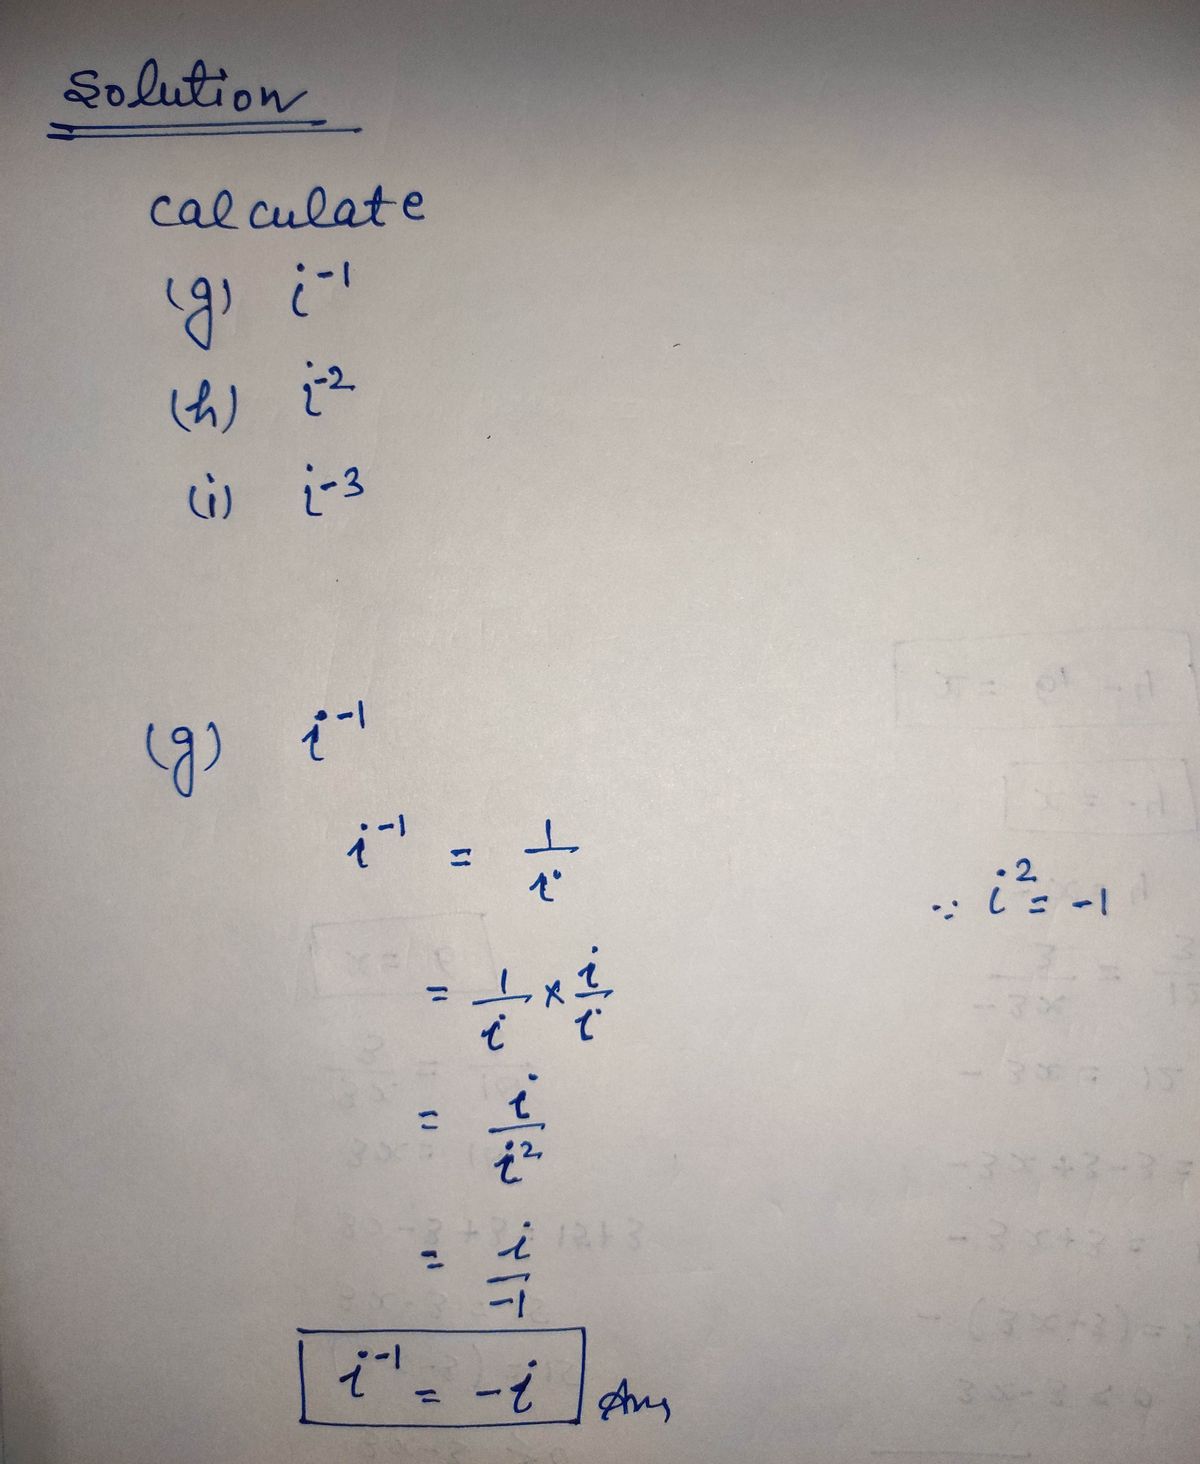 Solution
calculate
(g) i⁻¹
(h) i⁻²
(i) i⁻³
(g) i⁻¹
i⁻¹ = 1/i
∵ i² = -1
= 1/i × i/i
= i/i²
= i/-1
i⁻¹ = -i Ans